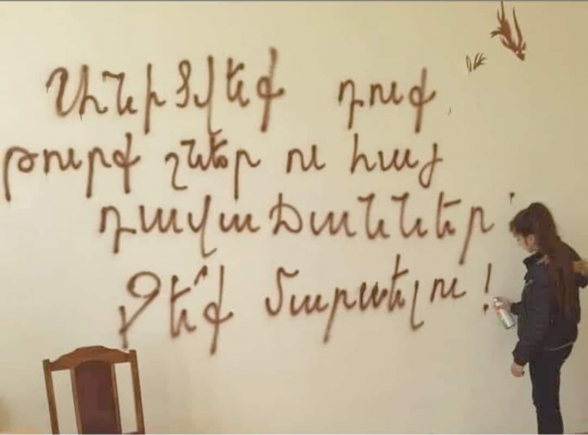 Անիծվեք դուք
թուրք շներ ու հայ
դավաճաններ
Չե՛ք մարսելու !